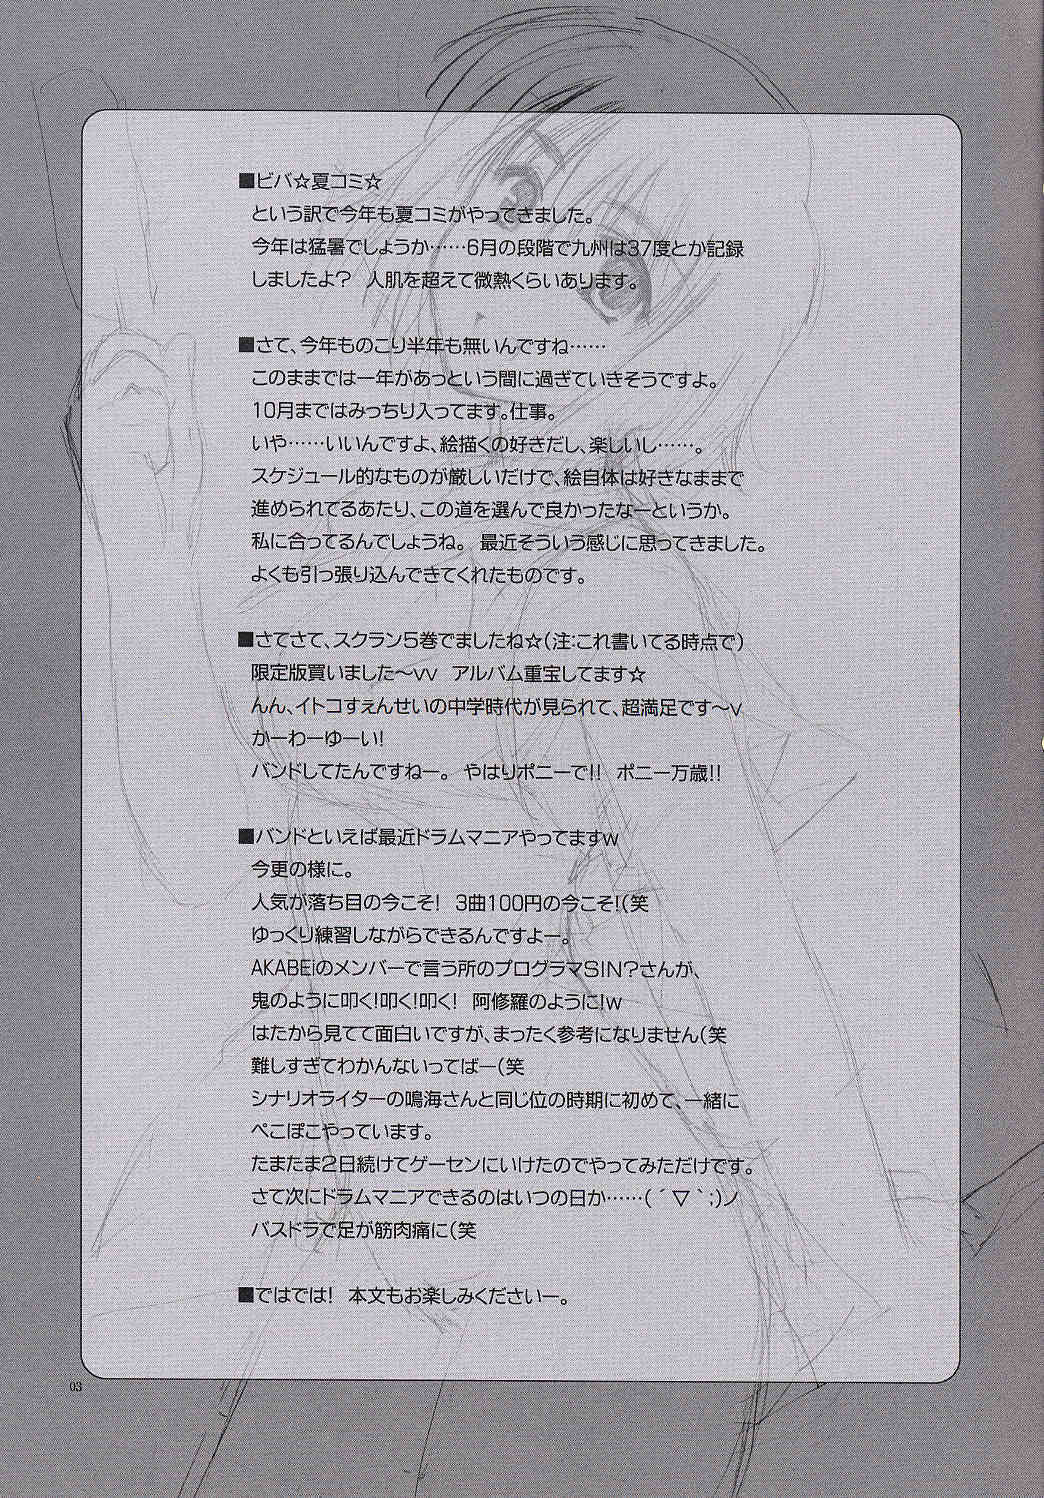 ■ビバ☆夏コミ☆
という訳で今年も夏コミがやってきました。
今年は猛暑でしょうか……6月の段階で九州は37度とか記録
しましたよ？　人肌を超えて微熱くらいあります。
■さて、今年ものこり半年も無いんですね……
このままでは一年があっという間に過ぎていきそうですよ。
10月まではみっちり入ってます。仕事。
いや……いいんですよ、絵描くの好きだし、楽しいし……。
スケジュール的なものが厳しいだけで、絵自体は好きなままで
進められてるあたり、この道を選んで良かったなーというか。
私に合ってるんでしょうね。　最近そういう感じに思ってきました。
よくも引っ張り込んできてくれたものです。
■さてさて、スクラン5巻でましたね☆（注：これ書いてる時点で）
限定版買いました〜vv　アルバム重宝してます☆
んん、イトコすぇんせいの中学時代が見られて、超満足です〜v
かーわーゆーい！
バンドしてたんですねー。　やはりポニーで!!　ポニー万歳!!
■バンドといえば最近ドラムマニアやってますw
今更の様に。
人気が落ち目の今こそ！　3曲100円の今こそ！（笑
ゆっくり練習しながらできるんですよー。
AKABEiのメンバーで言う所のプログラマSIN？さんが、
鬼のように叩く！叩く！叩く！　阿修羅のように！w
はたから見てて面白いですが、まったく参考になりません（笑
難しすぎてわかんないってばー（笑
シナリオライターの鳴海さんと同じ位の時期に初めて、一緒に
ぺこぽこやっています。
たまたま2日続けてゲーセンにいけたのでやってみただけです。
さて次にドラムマニアできるのはいつの日か……(´▽｀;)ノ
バスドラで足が筋肉痛に（笑
■ではでは！　本文もお楽しみくださいー。
03